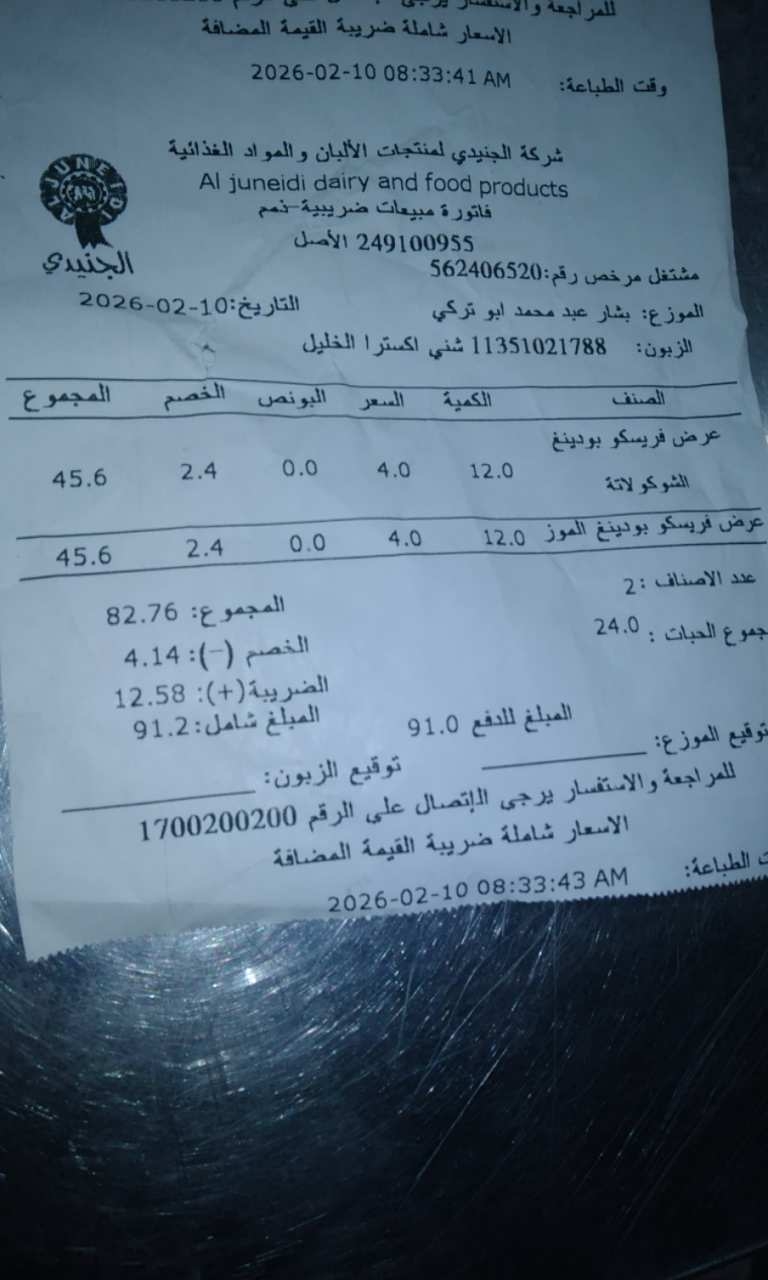 للمراجعة والاستفسار يرجى
الاسعار شاملة ضريبة القيمة المضافة
وقت الطباعة: 2026-02-10 08:33:41 AM
AL JUNEIDI
الجنيدي
شركة الجنيدي لمنتجات الألبان والمواد الغذائية
Al juneidi dairy and food products
فاتورة مبيعات ضريبية-ذمم
249100955 الأصل
مشتغل مرخص رقم:562406520
الموزع: بشار عبد محمد ابو تركي التاريخ:2026-02-10
الزبون: 11351021788 شني اكسترا الخليل
الصنف الكمية السعر البونص الخصم المجموع
عرض فريسكو بودينغ
الشوكولاتة 12.0 4.0 0.0 2.4 45.6
عرض فريسكو بودينغ الموز 12.0 4.0 0.0 2.4 45.6
عدد الاصناف :2
المجموع: 82.76
جموع الحبات : 24.0
الخصم (-): 4.14
الضريبة(+): 12.58
المبلغ شامل: 91.2
المبلغ للدفع 91.0
توقيع الموزع:
توقيع الزبون:
للمراجعة والاستفسار يرجى الإتصال على الرقم 1700200200
الاسعار شاملة ضريبة القيمة المضافة
ت الطباعة: 2026-02-10 08:33:43 AM